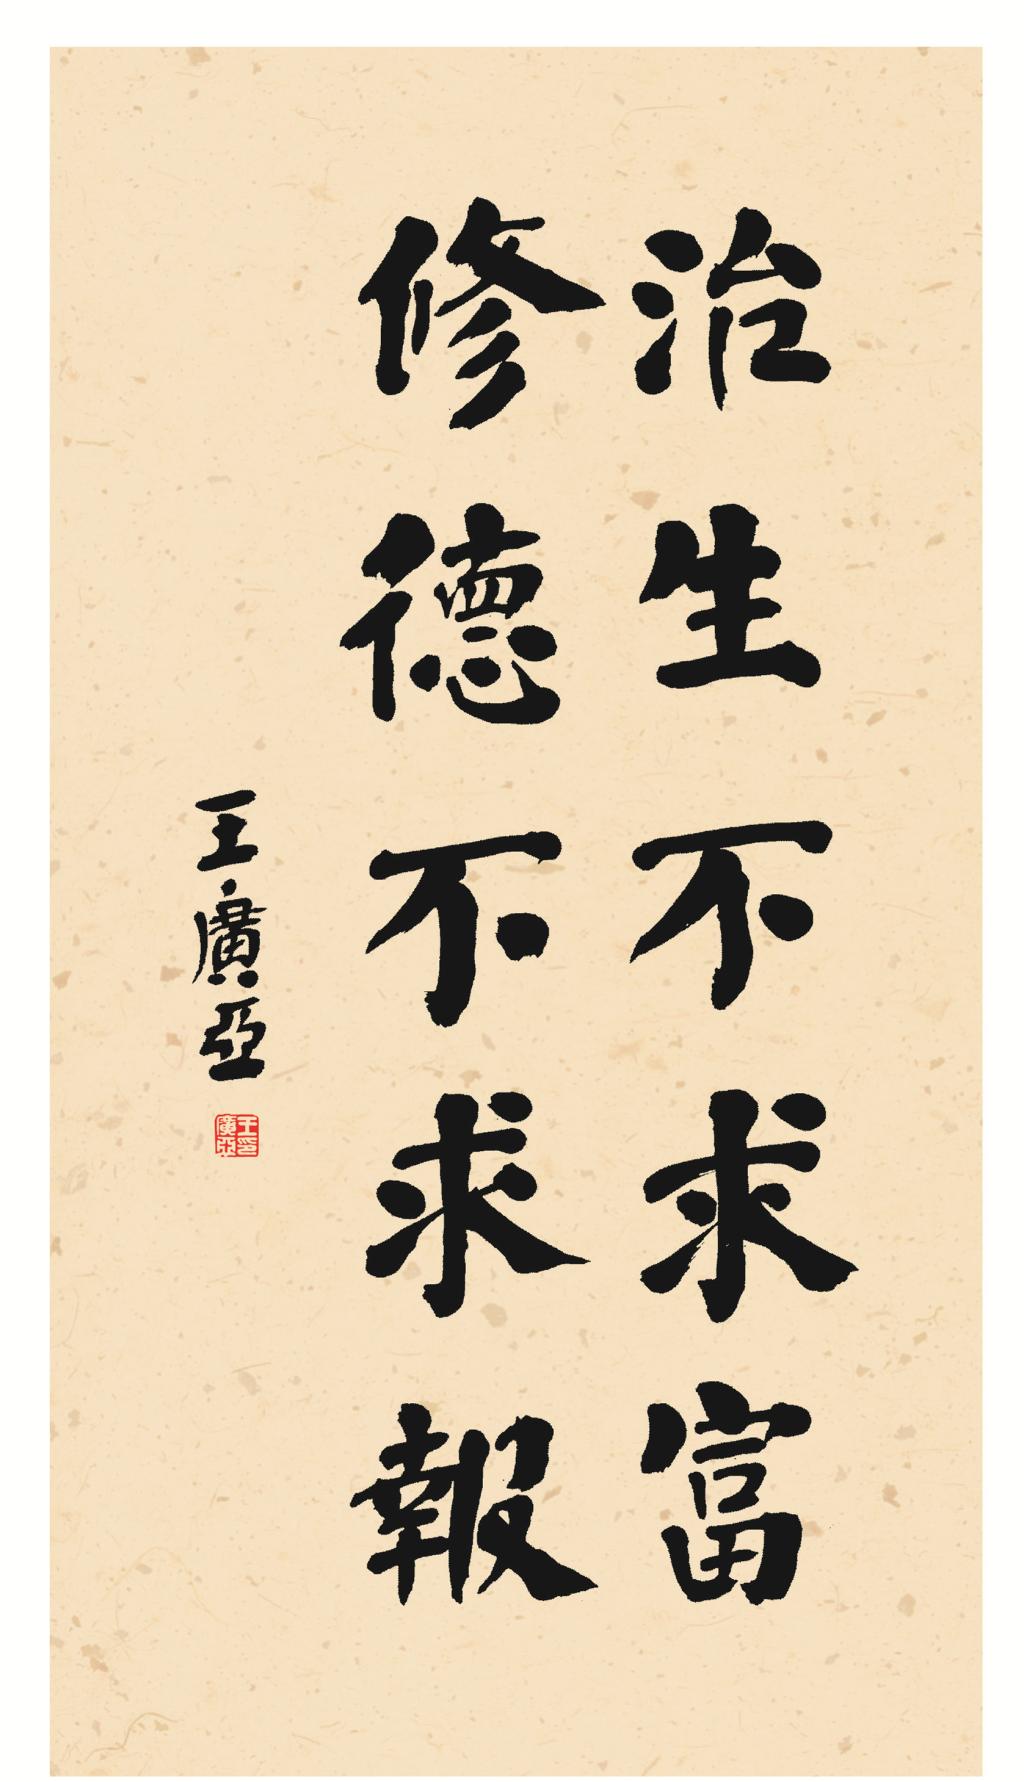 治生不求富
修德不求報
王廣亞
王印廣亞